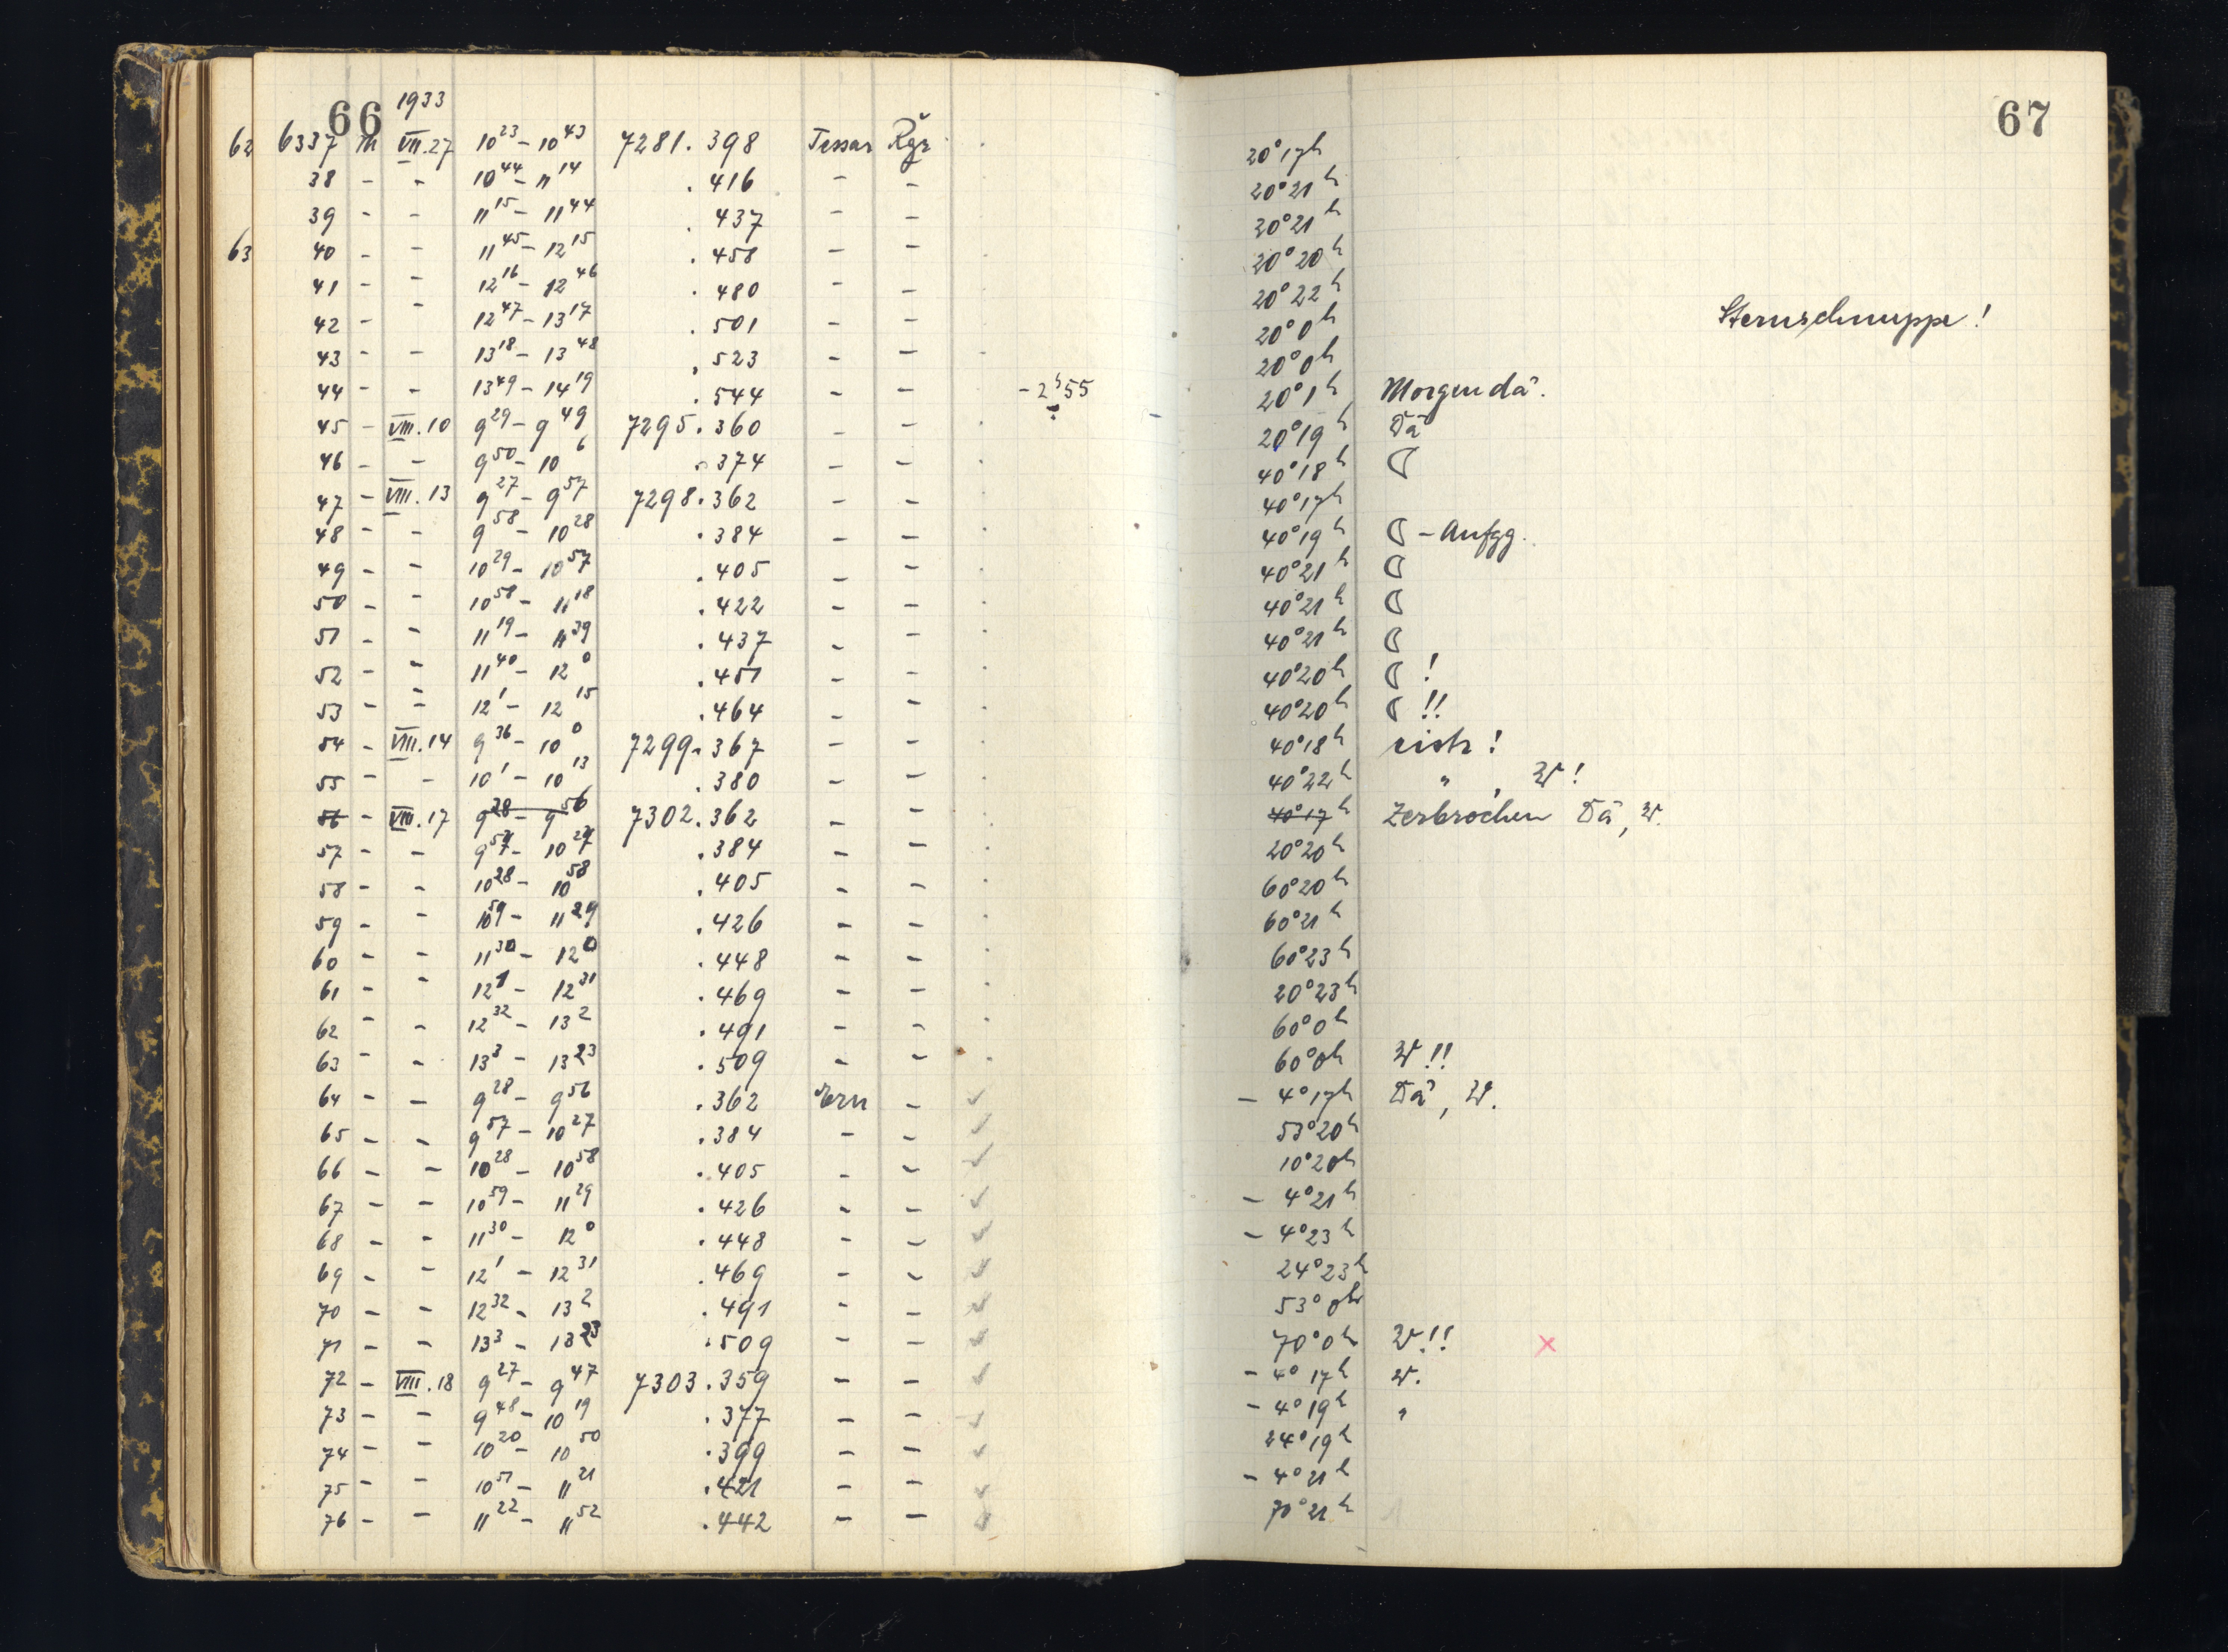 66 1933 67
62 6337 Th VII.27 10²³ – 10⁴³ 7281.398 Tessar Rgr 20° 17h
38 – – 10⁴⁴ – 11¹⁴ .416 – – 20° 21h
39 – – 11¹⁵ – 11⁴⁴ .437 – – 20° 21h
63 40 – – 11⁴⁵ – 12¹⁵ .458 – – 20° 20h
41 – – 12¹⁶ – 12⁴⁶ .480 – – 20° 22h
42 – – 12⁴⁷ – 13¹⁷ .501 – – 20° 0h Sternschnuppe!
43 – – 13¹⁸ – 13⁴⁸ .523 – – 20° 0h
44 – – 13⁴⁹ – 14¹⁹ .544 – – –2ʰ55 20° 1h Morgendä.
45 – VIII.10 9²⁹ – 9⁴⁹ 7295.360 – – 20° 19h Dä
46 – – 9⁵⁰ – 10⁶ .374 – – 40° 18h ☾
47 – VIII.13 9²⁷ – 9⁵⁷ 7298.362 – – 40° 17h
48 – – 9⁵⁸ – 10²⁸ .384 – – 40° 19h ☾ – Aufgg.
49 – – 10²⁹ – 10⁵⁷ .405 – – 40° 21h ☾
50 – – 10⁵⁸ – 11¹⁸ .422 – – 40° 21h ☾
51 – – 11¹⁹ – 11³⁹ .437 – – 40° 21h ☾
52 – – 11⁴⁰ – 12⁰ .451 – – 40° 20h ☾ !
53 – – 12¹ – 12¹⁵ .464 – – 40° 20h ☾ !!
54 – VIII.14 9³⁶ – 10⁰ 7299.367 – – 40° 18h !
55 – – 10¹ – 10¹³ .380 – – 40° 22h " , W!
56 – VIII.17 9²⁸ – 9⁵⁶ 7302.362 – – 40° 17h Zerbrochen Dä, W.
57 – – 9⁵⁷ – 10²⁷ .384 – – 20° 20h
58 – – 10²⁸ – 10⁵⁸ .405 – – 60° 20h
59 – – 10⁵⁹ – 11²⁹ .426 – – 60° 21h
60 – – 11³⁰ – 12⁰ .448 – – 60° 23h
61 – – 12¹ – 12³¹ .469 – – 20° 23h
62 – – 12³² – 13² .491 – – 60° 0h
63 – – 13³ – 13²³ .509 – – 60° 0h W!!
64 – – 9²⁸ – 9⁵⁶ .362 Ern – ✓ – 4° 17h Dä, W.
65 – – 9⁵⁷ – 10²⁷ .384 – – ✓ 53° 20h
66 – – 10²⁸ – 10⁵⁸ .405 – – ✓ 10° 20h
67 – – 10⁵⁹ – 11²⁹ .426 – – ✓ – 4° 21h
68 – – 11³⁰ – 12⁰ .448 – – ✓ – 4° 23h
69 – – 12¹ – 12³¹ .469 – – ✓ 24° 23h
70 – – 12³² – 13² .491 – – ✓ 53° 0h
71 – – 13³ – 13²³ .509 – – ✓ 70° 0h W!! ×
72 – VIII.18 9²⁷ – 9⁴⁷ 7303.359 – – ✓ – 4° 17h W.
73 – – 9⁴⁸ – 10¹⁹ .377 – – ✓ – 4° 19h "
74 – – 10²⁰ – 10⁵⁰ .399 – – ✓ 24° 19h
75 – – 10⁵¹ – 11²¹ .421 – – ✓ – 4° 21h
76 – – 11²² – 11⁵² .442 – – ✓ 70° 21h